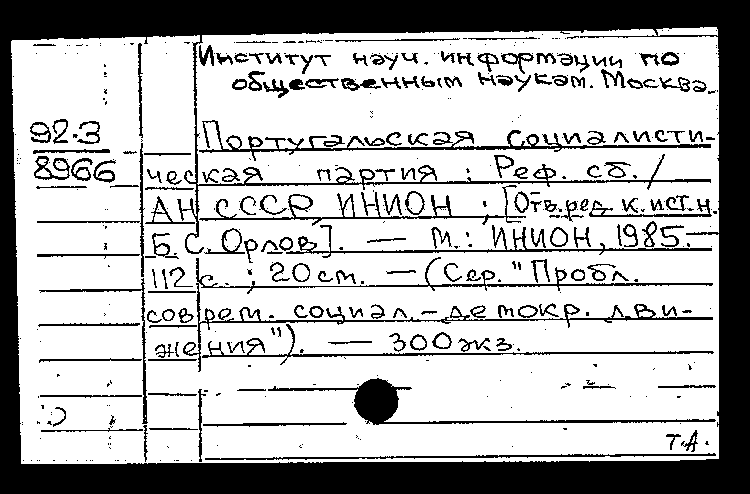 Институт науч. информации по
общественным наукам. Москва.
92-3
8966
Португальская социалисти-
ческая партия : Реф. сб. /
АН СССР, ИНИОН ; [Отв. ред. к. ист. н.
Б. С. Орлов]. — М. : ИНИОН, 1985. —
112 с. ; 20 см. — (Сер. "Пробл.
соврем. социал.-демокр. дви-
жения"). — 300 экз.
Т.А.